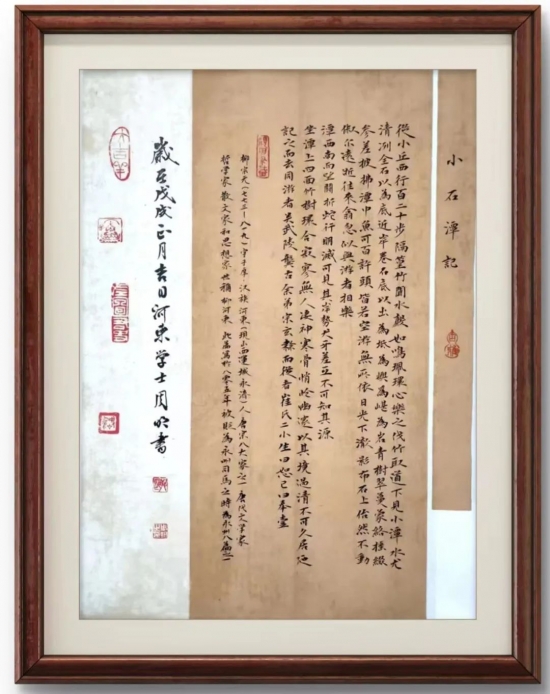 小石潭記
從小丘西行百二十步隔篁竹聞水聲如鳴珮環心樂之伐竹取道下見小潭水尤
清冽全石以為底近岸卷石底以出為坻為嶼為嵁為岩青樹翠蔓蒙絡搖綴
參差披拂潭中魚可百許頭皆若空游無所依日光下澈影布石上佁然不動
俶尔遠逝往來翕忽似與游者相樂
潭西南而望斗折蛇行明滅可見其岸勢犬牙差互不可知其源
坐潭上四面竹樹環合寂寥無人凄神寒骨悄愴幽邃以其境過清不可久居乃
記之而去同游者吳武陵龔古余弟宗玄隸而從者崔氏二小生曰恕己曰奉壹
柳宗元（七七三—八一九）字子厚 汉族 河東（現山西運城永濟）人 唐宋八大家之一 唐代文學家
哲學家 散文家和思想家 世稱柳河東 此篇寫於八零五年被貶為永州司馬之時 為永州八篇之一
歲在戊戌正月吉日河東学士周書